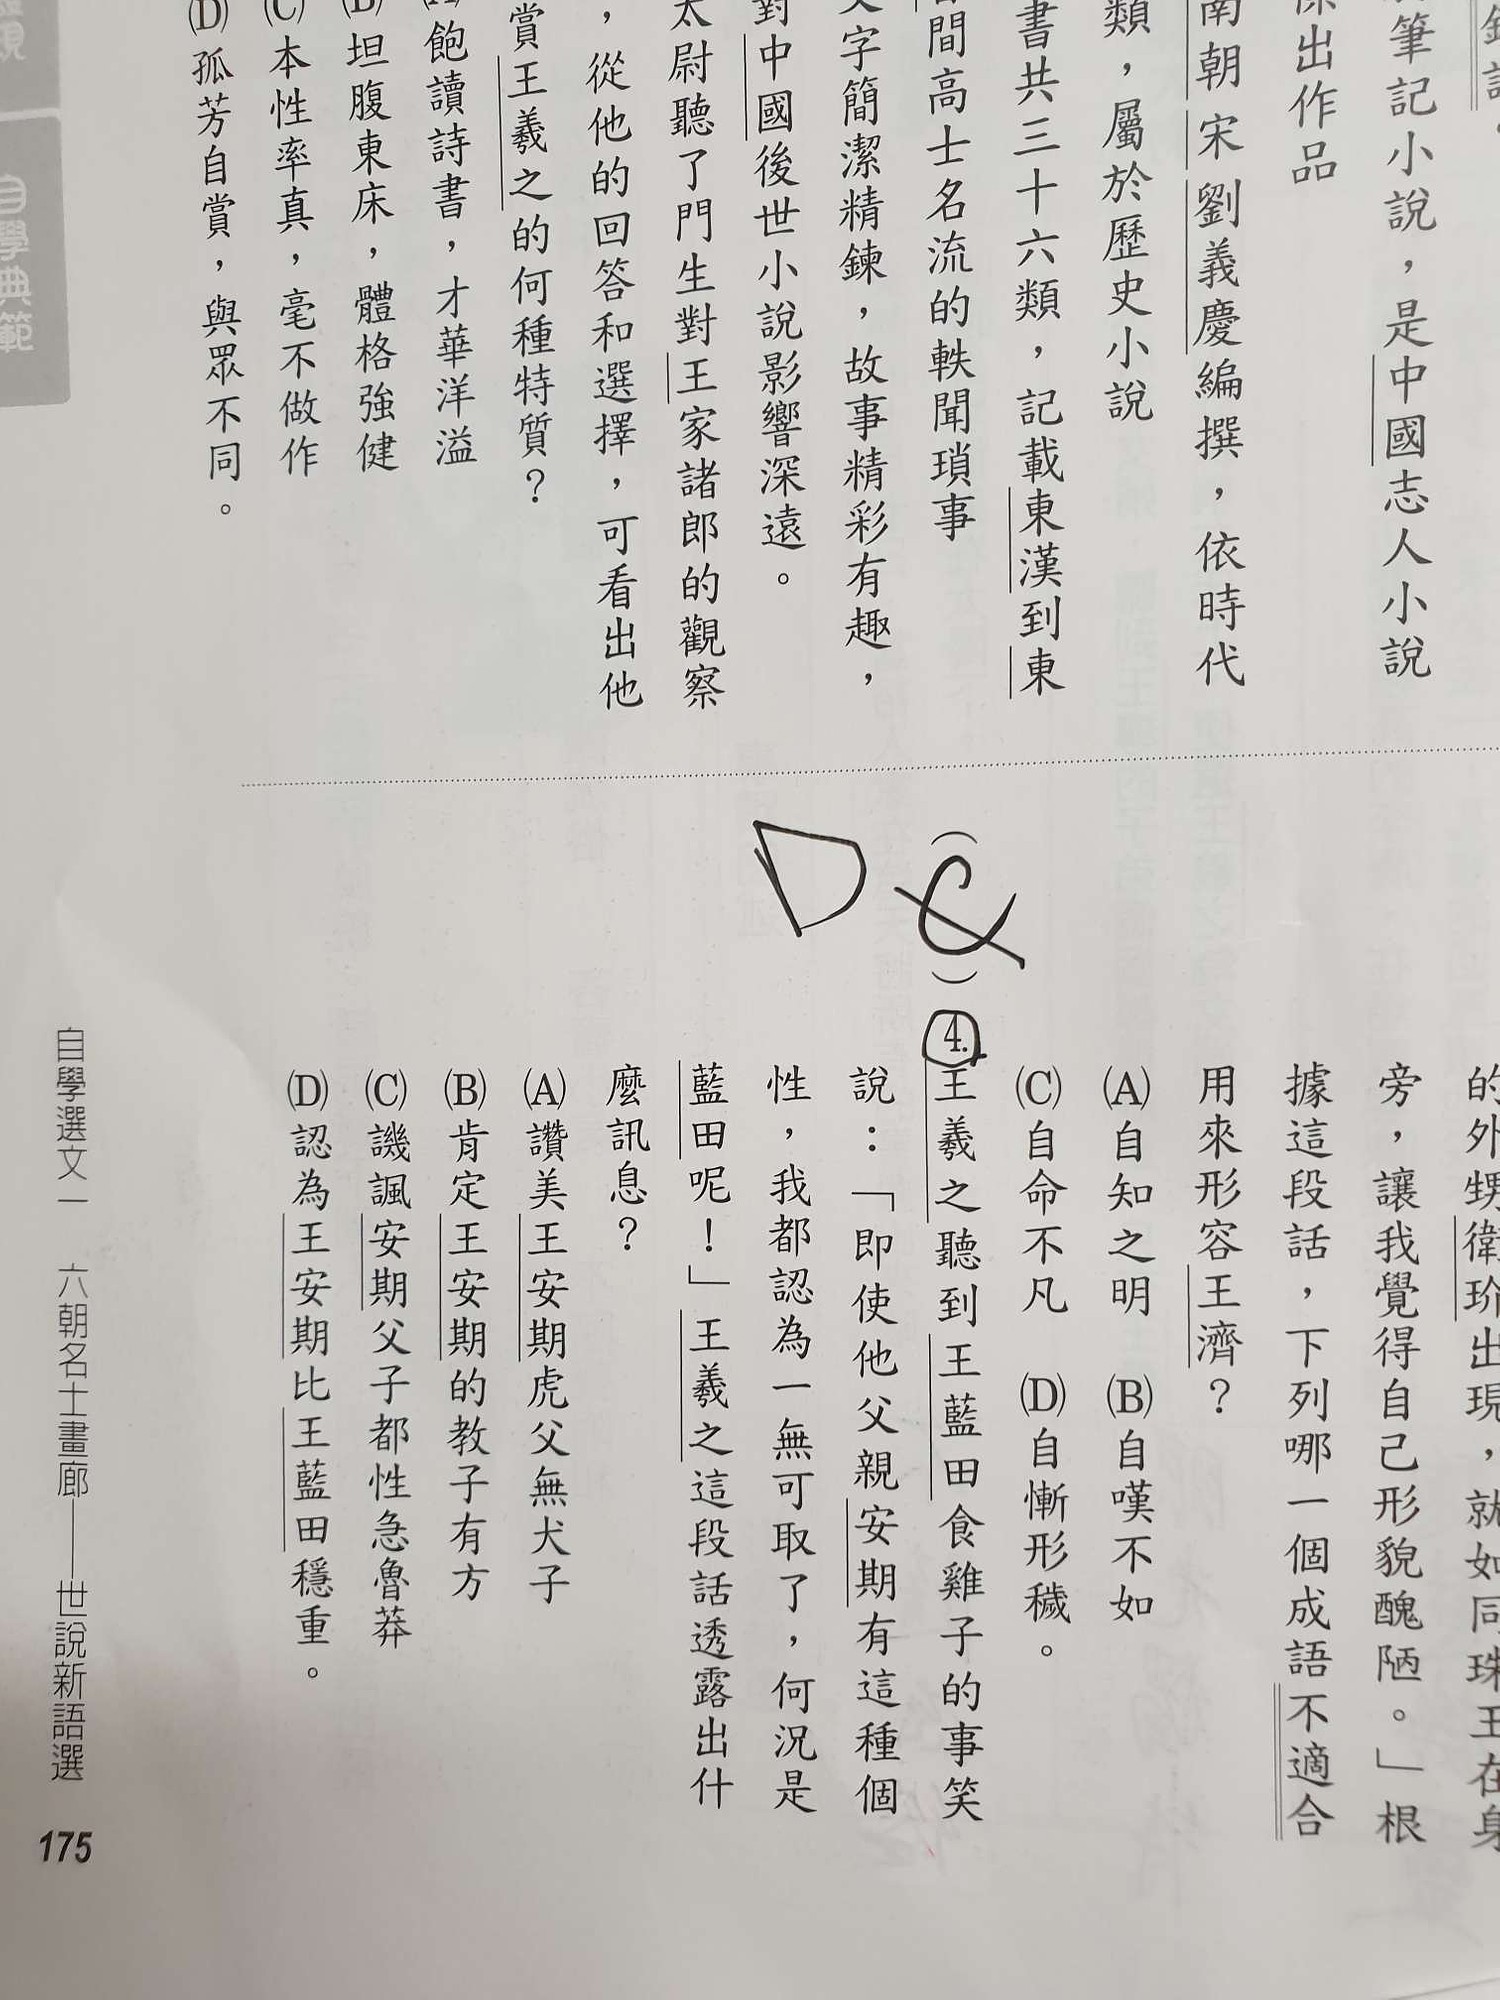 筆記小說，是中國志人小說
出作品
南朝宋劉義慶編撰，依時代
類，屬於歷史小說
書共三十六類，記載東漢到東
間高士名流的軼聞瑣事
文字簡潔精鍊，故事精彩有趣，
對中國後世小說影響深遠。
太尉聽了門生對王家諸郎的觀察
，從他的回答和選擇，可看出他
賞王羲之的何種特質？
(A)飽讀詩書，才華洋溢
(B)坦腹東床，體格強健
(C)本性率真，毫不做作
(D)孤芳自賞，與眾不同。
的外甥衛玠出現，就如同珠玉在身
旁，讓我覺得自己形貌醜陋。」根
據這段話，下列哪一個成語不適合
用來形容王濟？
(A)自知之明 (B)自嘆不如
(C)自命不凡 (D)自慚形穢。
(C)4.王羲之聽到王藍田食雞子的事笑
D
說：「即使他父親安期有這種個
性，我都認為一無可取了，何況是
藍田呢！」王羲之這段話透露出什
麼訊息？
(A)讚美王安期虎父無犬子
(B)肯定王安期的教子有方
(C)譏諷安期父子都性急魯莽
(D)認為王安期比王藍田穩重。
自學典範
自學選文一 六朝名士畫廊——世說新語選
175